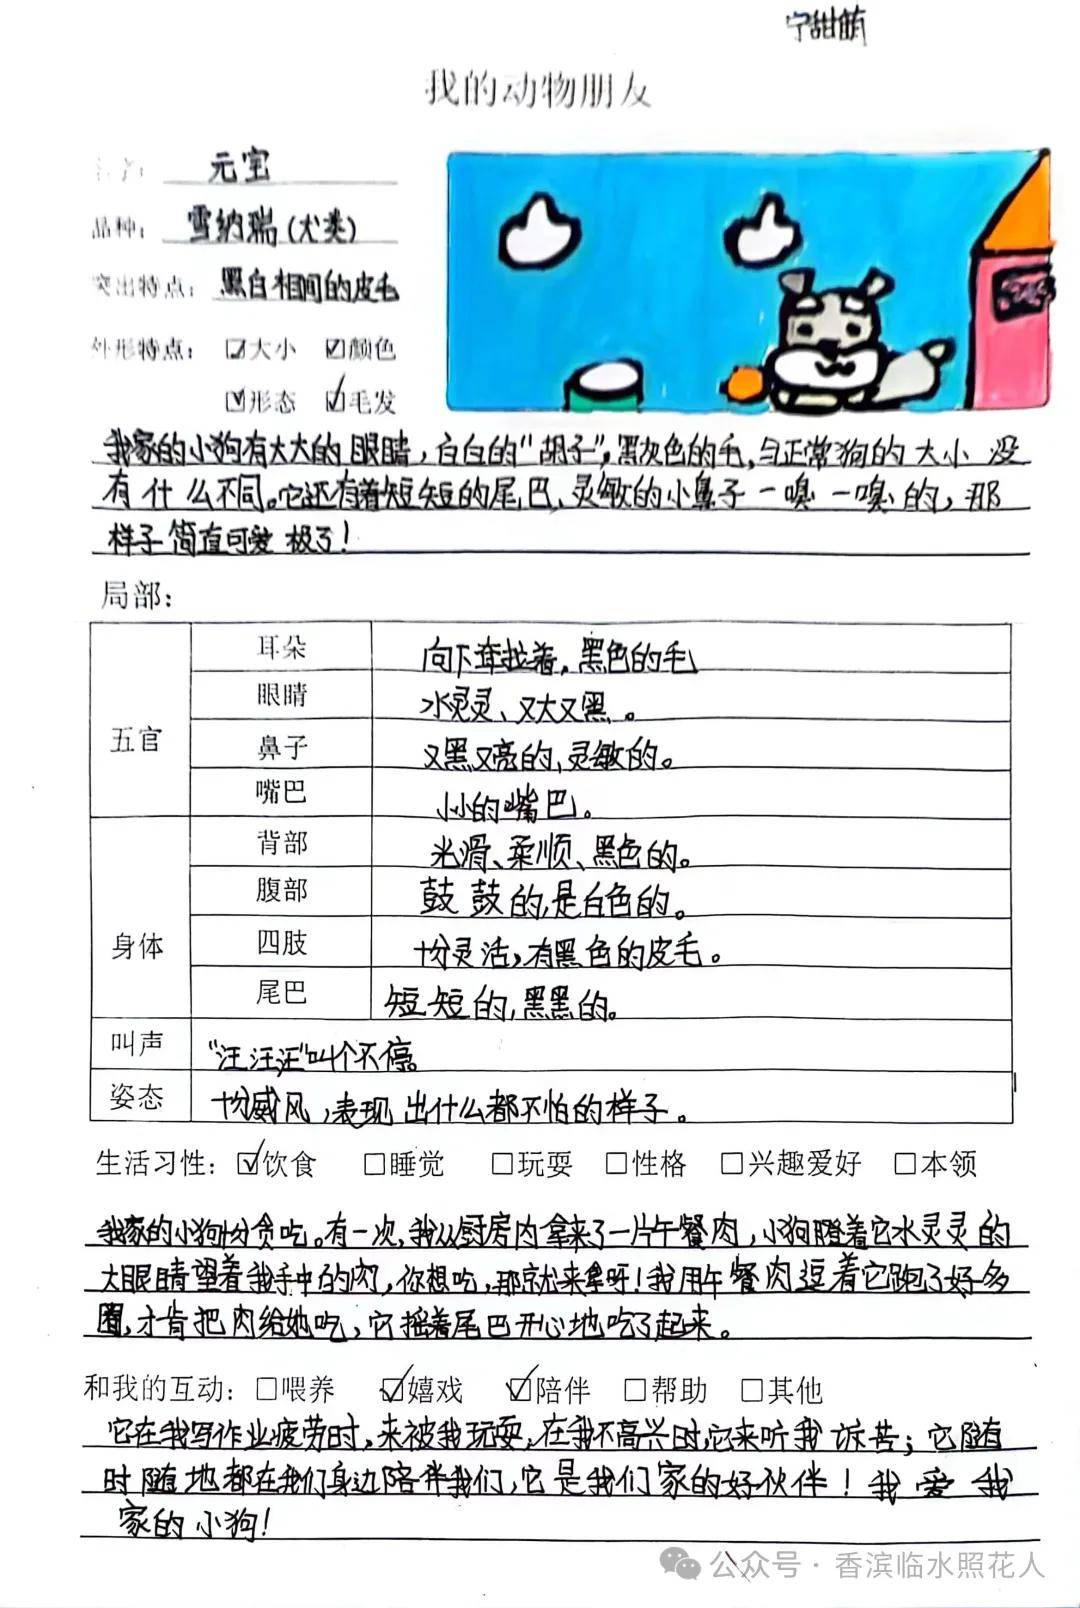 宁甜萌
我的动物朋友
名字: 元宝
品种: 雪纳瑞(犬类)
突出特点: 黑白相间的皮毛
外形特点: ☑大小 ☑颜色
☑形态 ☑毛发
我家的小狗有大大的眼睛，白白的“胡子”，黑灰色的毛，与正常狗的大小没
有什么不同。它还有着短短的尾巴、灵敏的小鼻子一嗅一嗅的，那
样子简直可爱极了！
局部:
五官
耳朵 向下耷拉着，黑色的毛
眼睛 水灵灵、又大又黑。
鼻子 又黑又亮的，灵敏的。
嘴巴 小小的嘴巴。
身体
背部 光滑、柔顺、黑色的。
腹部 鼓鼓的，是白色的。
四肢 十分灵活，有黑色的皮毛。
尾巴 短短的，黑黑的。
叫声 “汪汪汪”叫个不停。
姿态 十分威风，表现出什么都不怕的样子。
生活习性: ☑饮食 □睡觉 □玩耍 □性格 □兴趣爱好 □本领
我家的小狗十分贪吃。有一次，我从厨房内拿来了一片午餐肉，小狗瞪着它水灵灵的
大眼睛望着我手中的肉，你想吃，那就来拿呀！我用午餐肉逗着它跑了好多
圈，才肯把肉给她吃，它摇着尾巴开心地吃了起来。
和我的互动: □喂养 ☑嬉戏 ☑陪伴 □帮助 □其他
它在我写作业疲劳时，来被我玩耍，在我不高兴时，它来听我诉苦；它随
时随地都在我们身边陪伴我们，它是我们家的好伙伴！我爱我
家的小狗！
公众号·香滨临水照花人